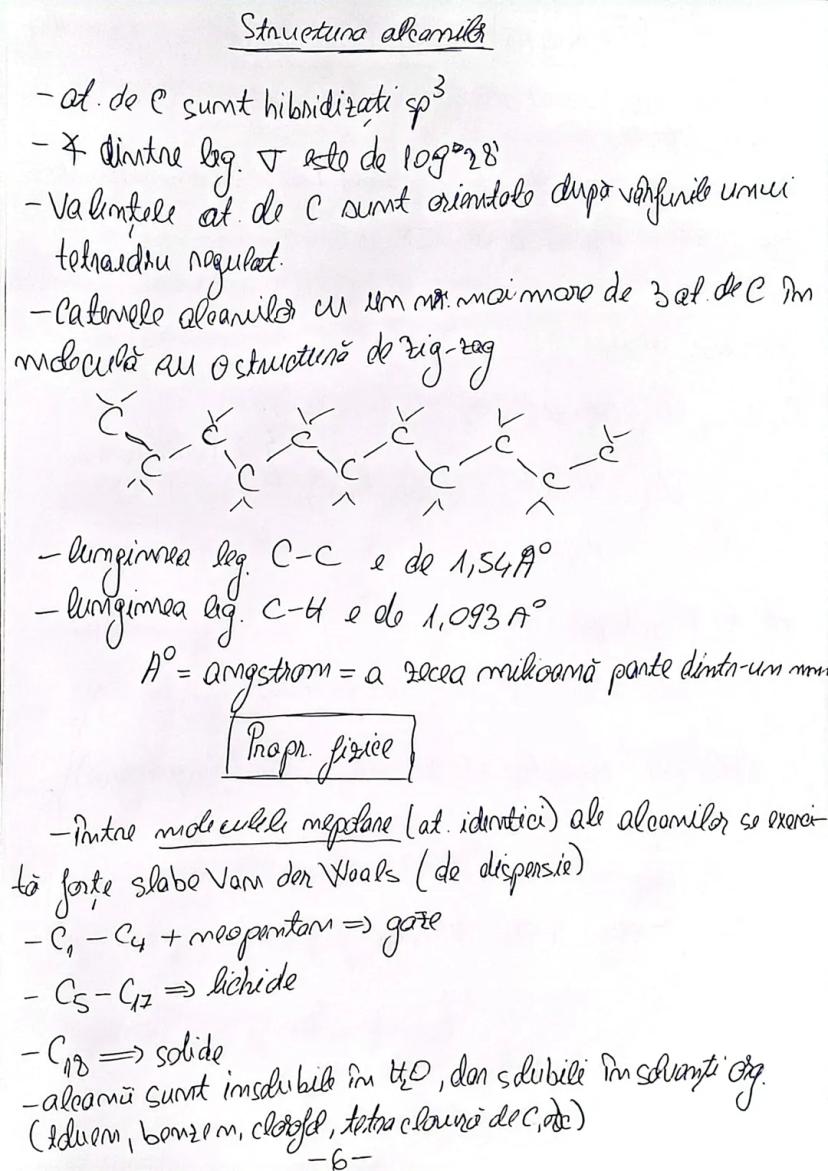 Structura alcanilor
- at. de C sunt hibridizați sp³
- ∢ dintre leg. σ este de 109°28'
- Valențele at. de C sunt orientate după vârfurile unui
tetraedru regulat.
- Catenele alcanilor cu un nr. mai mare de 3 at. de C în
moleculă au o structură de zig-zag
C C C C C C
C C C C C
- lungimea leg. C-C e de 1,54 A°
- lungimea leg. C-H e de 1,093 A°
A° = angstrom = a zecea milioană parte dintr-un mm
Propr. fizice
- între moleculele nepolare (at. identici) ale alcanilor se exerci-
tă forțe slabe Van der Waals (de dispersie)
- C₁ - C₄ + neopentan => gaze
- C₅ - C₁₇ => lichide
- C₁₈ => solide
- alcanii sunt insolubili în H₂O, dar solubili în solvanți org.
(toluen, benzen, clorof, tetraclorură de C, etc)
-6-